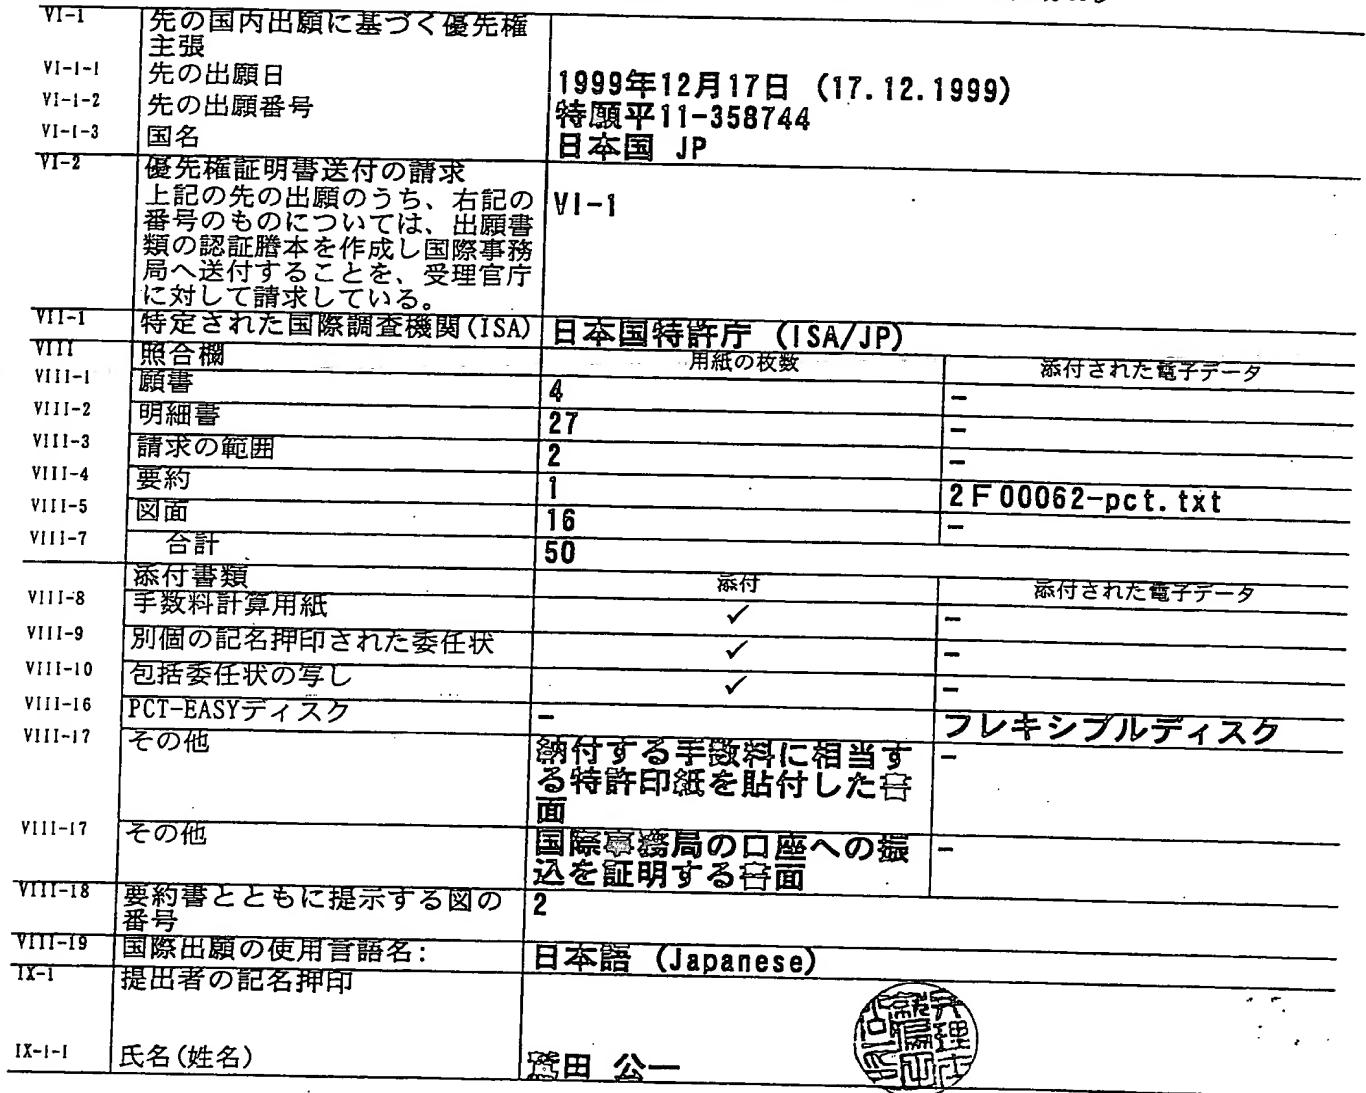 VI-1 先の国内出願に基づく優先権
主張
VI-1-1 先の出願日 1999年12月17日 (17.12.1999)
VI-1-2 先の出願番号 特願平11-358744
VI-1-3 国名 日本国 JP
VI-2 優先権証明書送付の請求
上記の先の出願のうち、右記の VI-1
番号のものについては、出願書
類の認証謄本を作成し国際事務
局へ送付することを、受理官庁
に対して請求している。
VII-1 特定された国際調査機関(ISA) 日本国特許庁 (ISA/JP)
VIII 照合欄 用紙の枚数 添付された電子データ
VIII-1 願書 4 -
VIII-2 明細書 27 -
VIII-3 請求の範囲 2 -
VIII-4 要約 1 2F00062-pct.txt
VIII-5 図面 16 -
VIII-7 合計 50
添付書類 添付 添付された電子データ
VIII-8 手数料計算用紙 ✓ -
VIII-9 別個の記名押印された委任状 ✓ -
VIII-10 包括委任状の写し ✓ -
VIII-16 PCT-EASYディスク - フレキシブルディスク
VIII-17 その他 納付する手数料に相当す -
る特許印紙を貼付した書
面
VIII-17 その他 国際事務局の口座への振 -
込を証明する書面
VIII-18 要約書とともに提示する図の 2
番号
VIII-19 国際出願の使用言語名: 日本語 (Japanese)
IX-1 提出者の記名押印
IX-1-1 氏名(姓名) 鷲田 公一